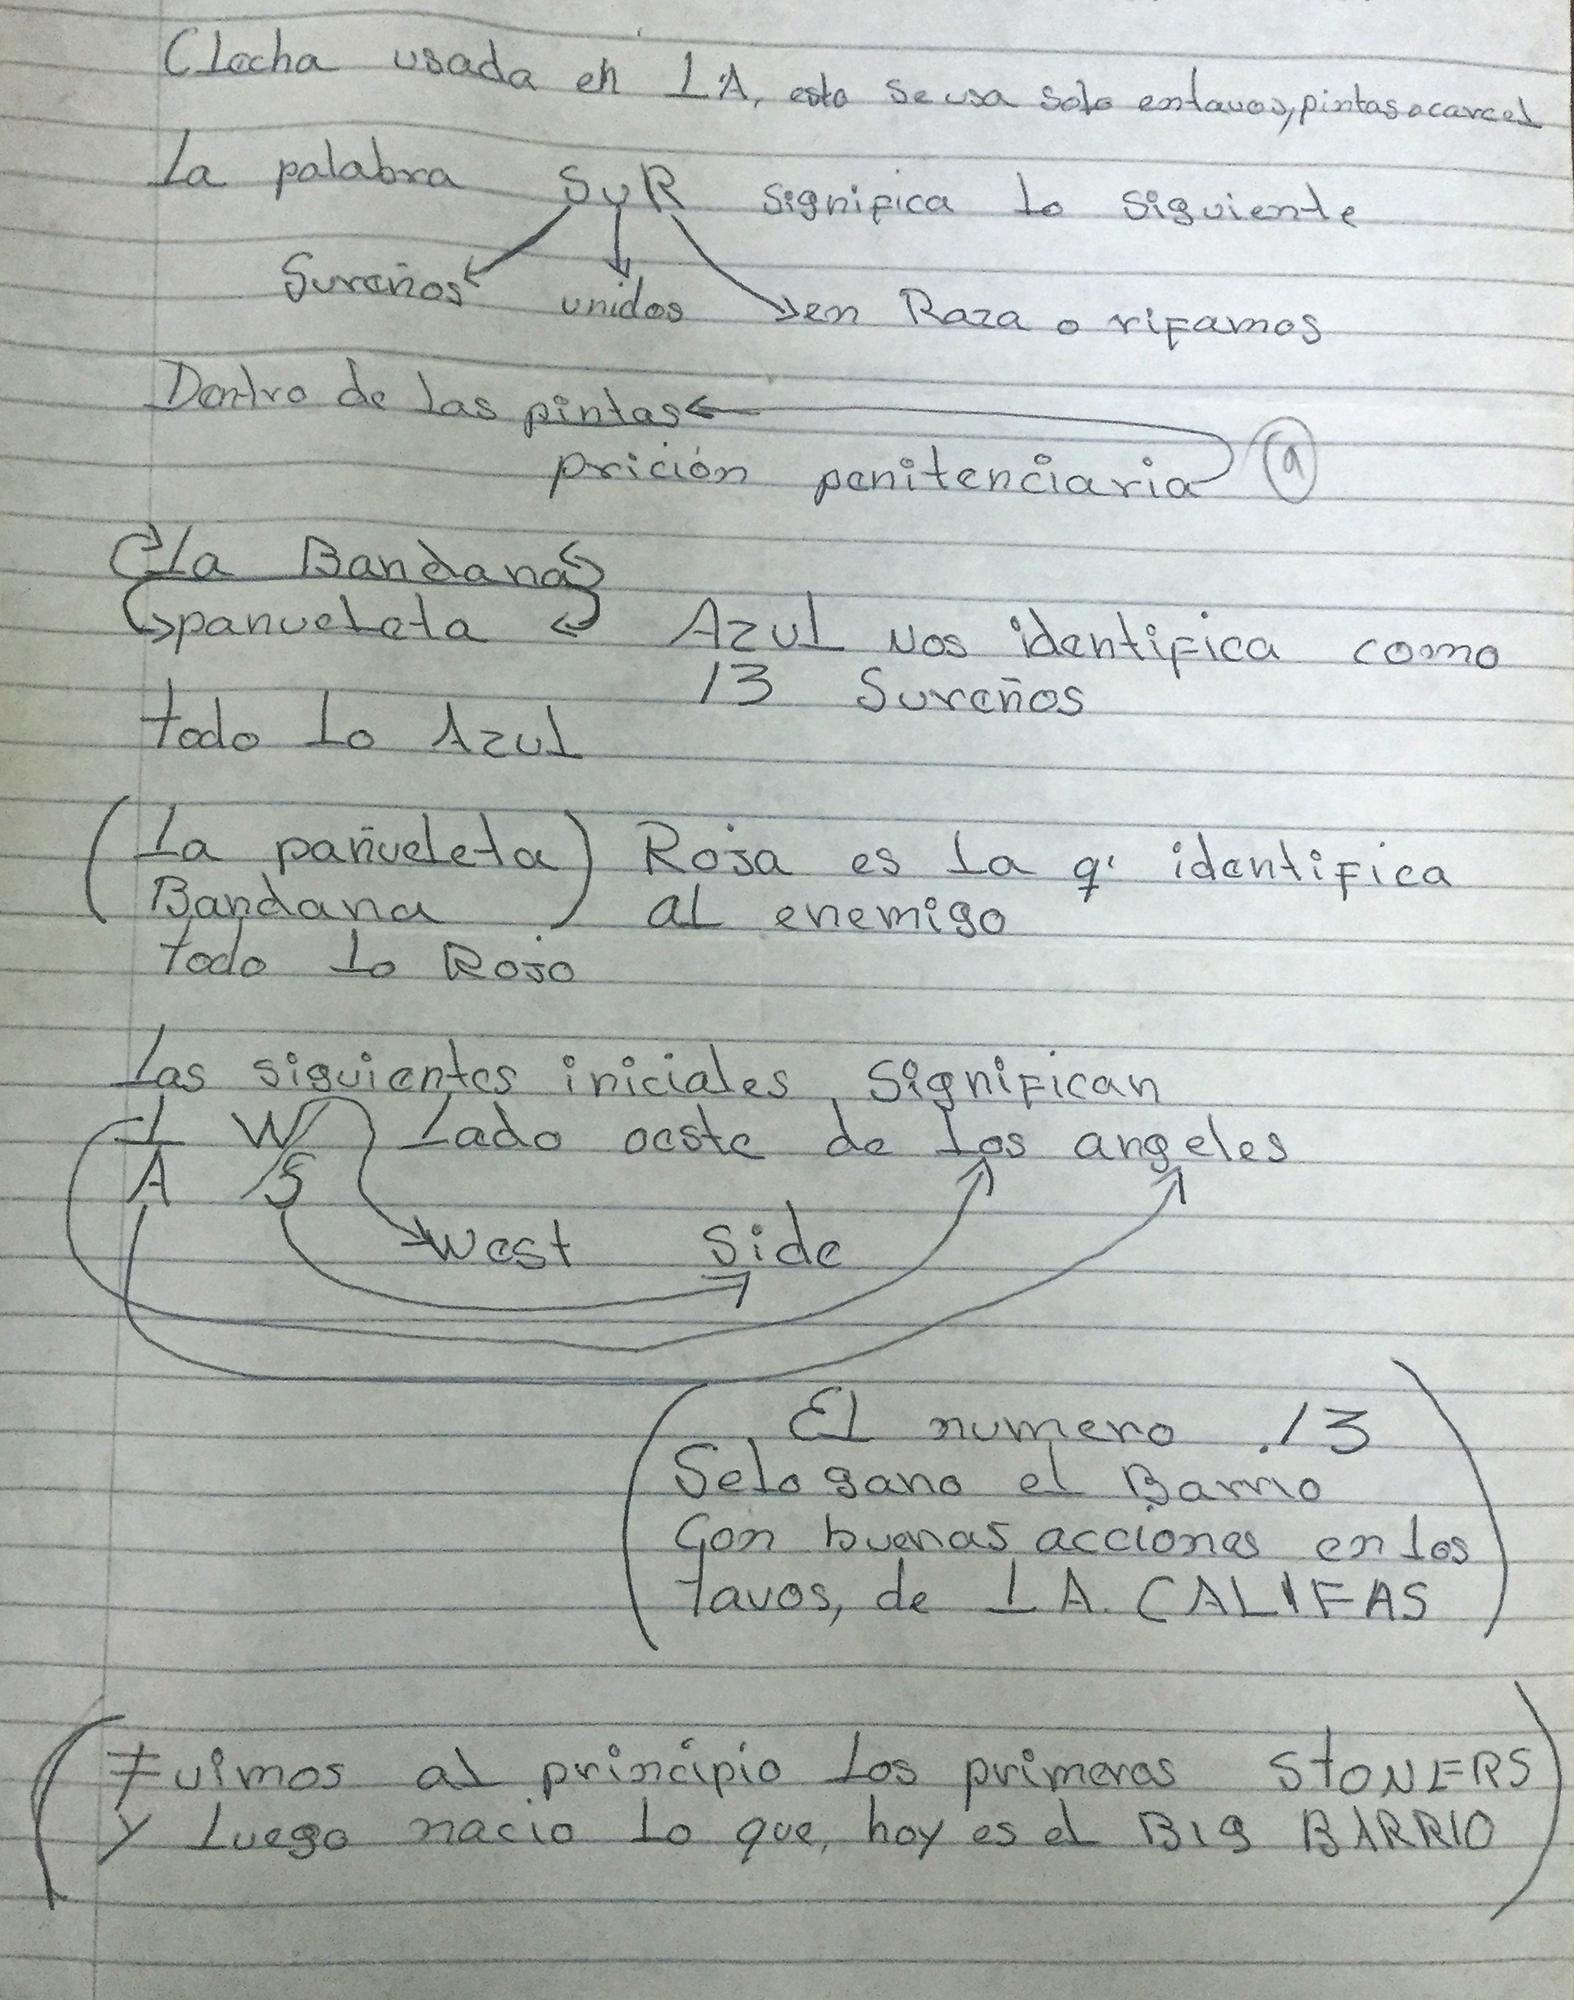 Clecha usada en LA, esto se usa solo entavos, pintas o carcel
La palabra SUR significa lo siguiente
Sureños unidos en Raza o rifamos
Dentro de las pintas
prición penitenciaria
9
La Bandana
panueleta Azul nos identifica como
13 Sureños
todo lo Azul
(La pañueleta) Roja es la q' identifica
Bandana al enemigo
todo lo Rojo
Las siguientes iniciales, significan
L W Lado oeste de Los angeles
A S
West Side
(El numero 13
Se lo gano el Barrio
Con buenas acciones en los
tavos, de LA. CALIFAS)
(Fuimos al principio los primeros STONERS
y luego nacio lo que, hoy es el BIG BARRIO)